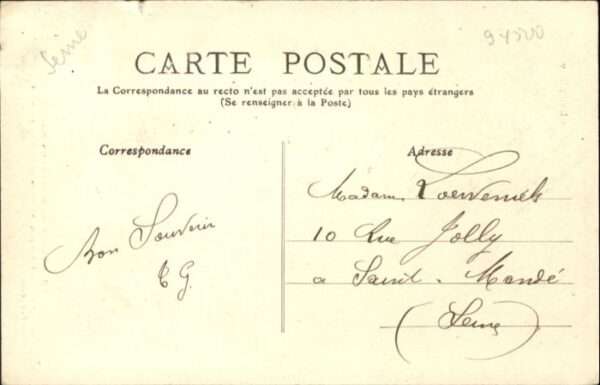 Seine
94500
CARTE POSTALE
La Correspondance au recto n'est pas acceptée par tous les pays étrangers
(Se renseigner à la Poste)
Correspondance
Adresse
Bon Souvenir
Madame
10 Rue Jolly
a Saint-Mandé
(Seine)